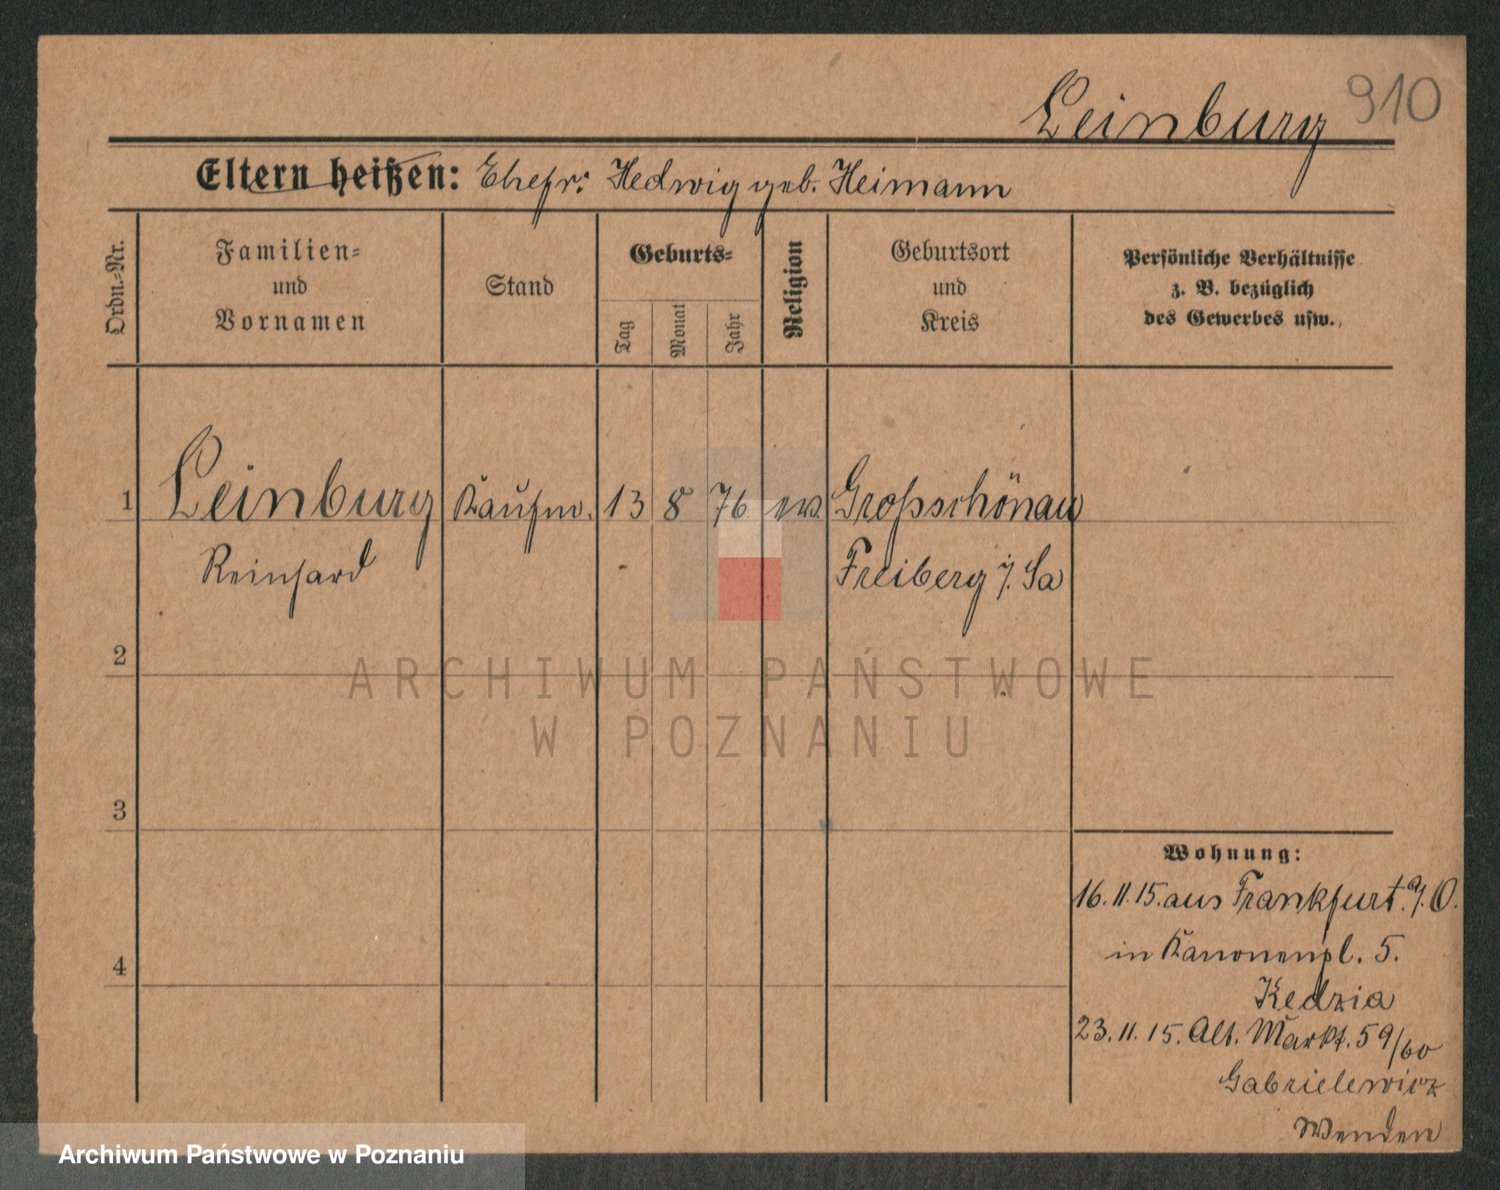 Leinburg 910
Eltern heißen: Ehefr: Hedwig geb. Heimann
Ordn.-Nr.
Familien-
und
Vornamen
Stand
Geburts-
Tag
Monat
Jahr
Religion
Geburtsort
und
Kreis
Persönliche Verhältnisse
z. B. bezüglich
des Gewerbes usw.
1 Leinburg Kaufm. 13 8 76 ev. Grossschönau
Reinhard - Freiberg i/. Sa
2
ARCHIWUM PAŃSTWOWE
W POZNANIU
3
Wohnung:
16.11.15. aus Frankfurt a/. O.
in Kanonenpl. 5.
4
Kedzia
23.11.15. Alt. Markt. 59/60
Gabrielewicz
Wenden
Archiwum Państwowe w Poznaniu